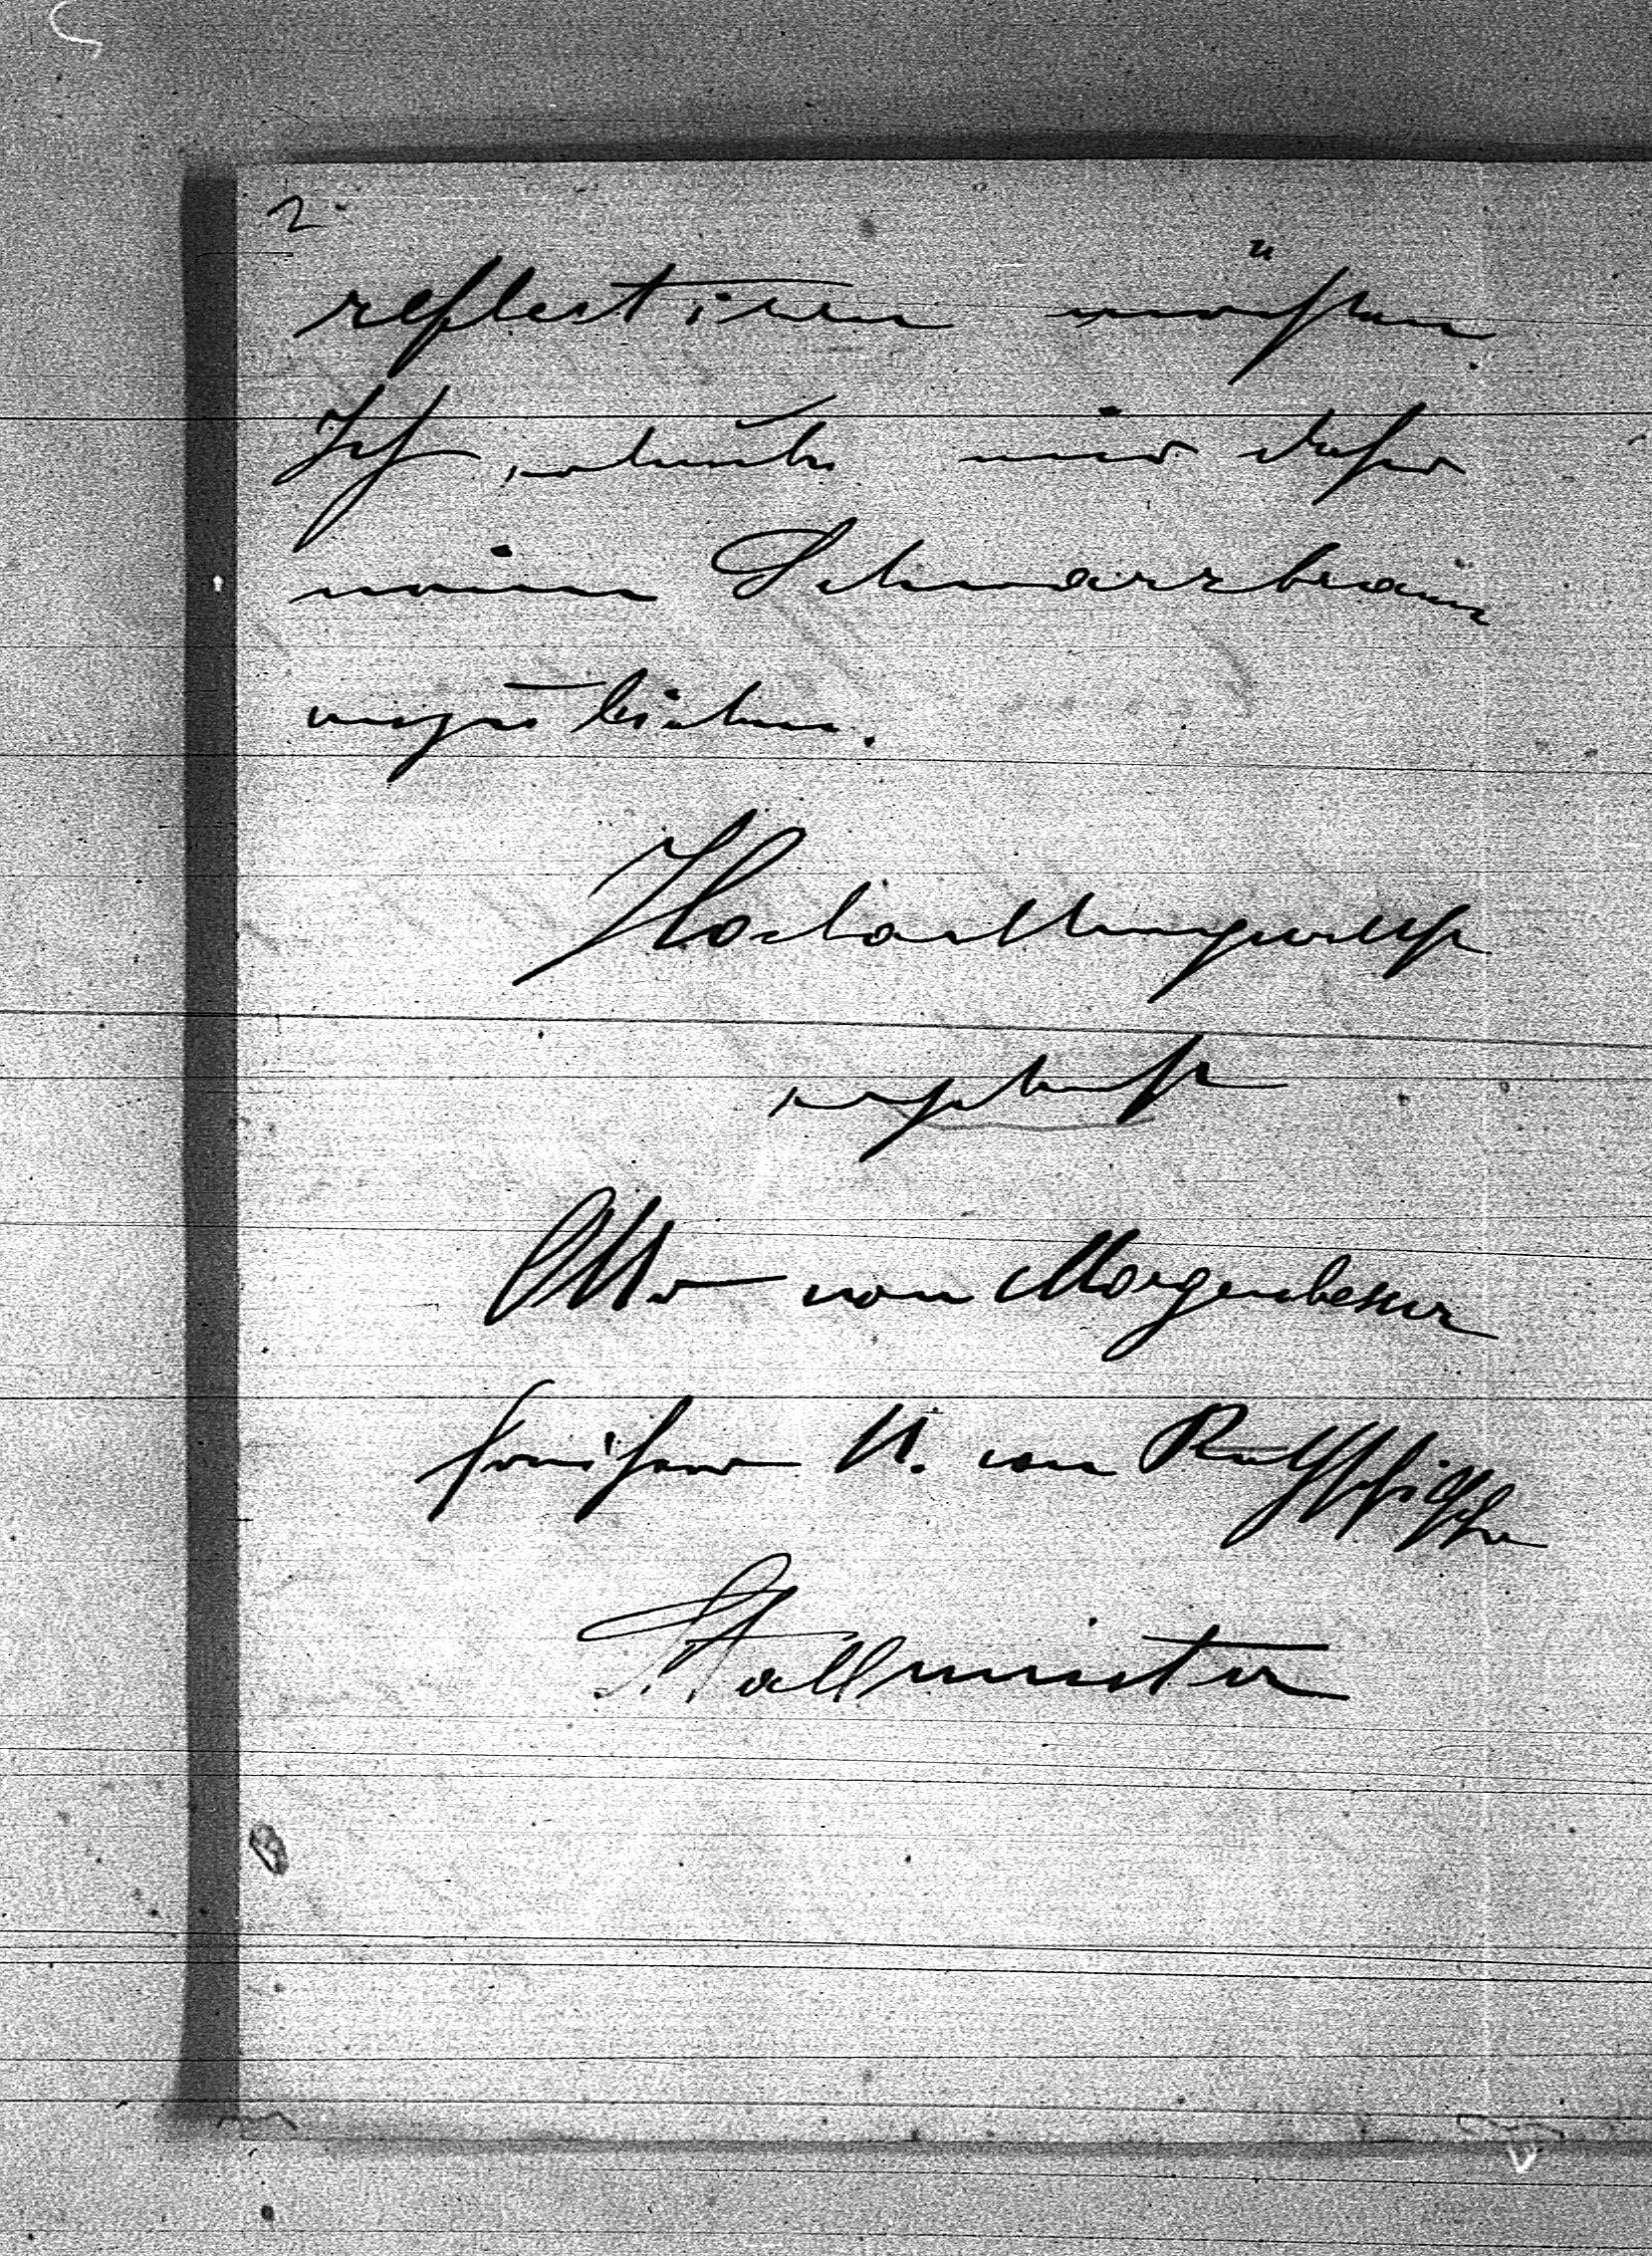 2.
reflectiren möchten.
Ich erlaube mir daher
meinen Schwarzbraun
anzubieten.
Hochachtungsvollst
ergebenst
Otto von Morgenbesser
Freiherr A. von
Stallmeister